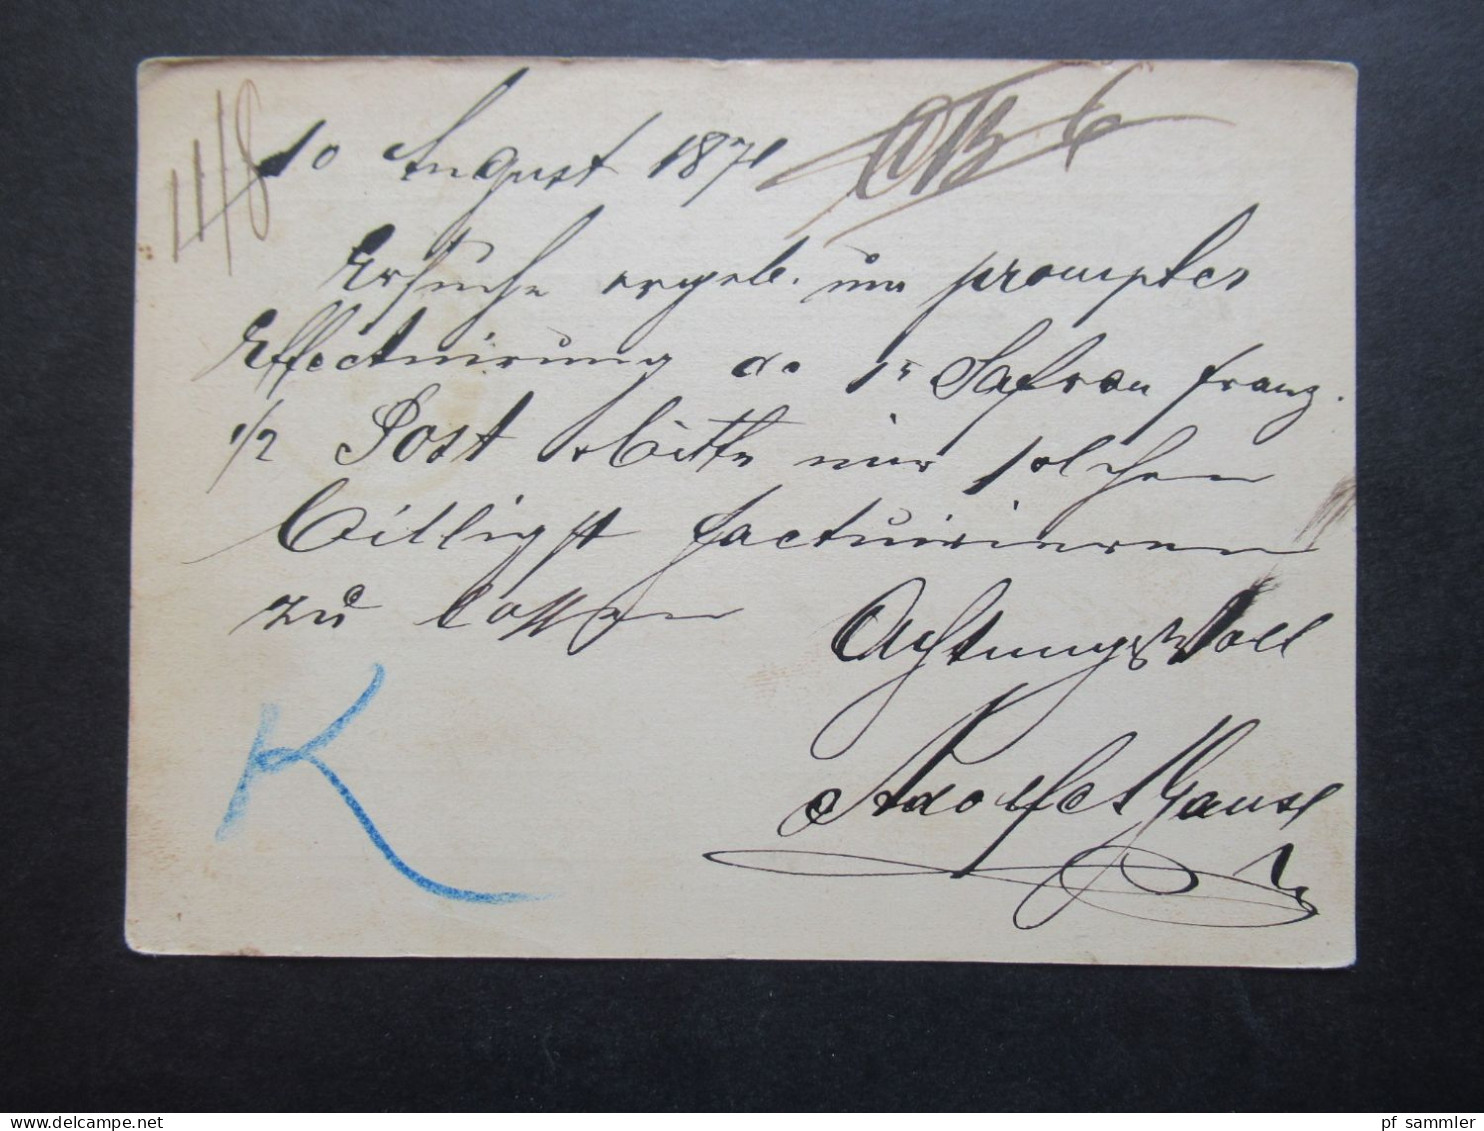 11/8
10 August 1871
Ersuche ergeb. um promptes
Effectuirung de 1 Safran franz.
1/2 Post bitte mir solchen
billigst factuirieren
zu lassen
Achtungsvoll
Adolf
K
pf_sammler
www.delcampe.net